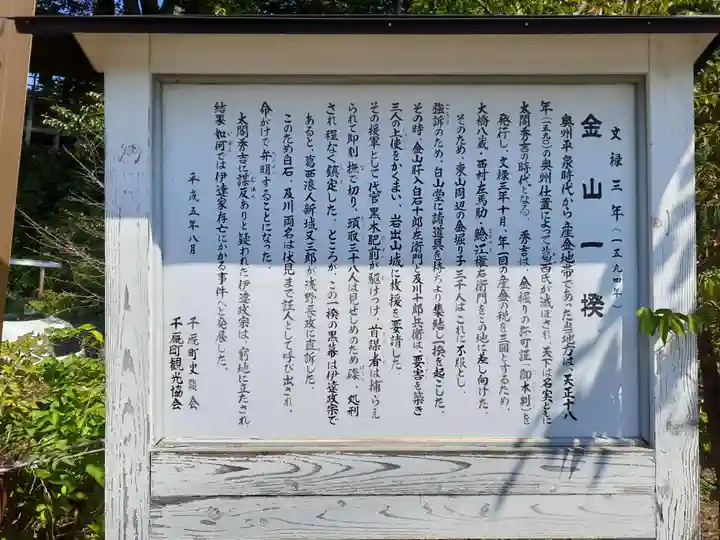 文禄三年(一五九四年)
金山一揆
奥州平泉時代から産金地帯であった当地方は、天正十八
年(一五九〇)の奥州仕置によって葛西氏が滅ぼされ、天下は名実ともに
太閤秀吉の時代となる。秀吉は、金掘りの許可証(御本判)を
発行し、文禄三年十月、年一回の産金の税を三回とするため、
大橋八蔵・西村左馬助・鯰江権右衛門をこの地に差し向けた。
そのため、東山周辺の金掘り子三千人はこれに不服とし、
強訴のため、白山堂に諸道具を持ちより集結し一揆を起こした。
その時、金山肝入白石十郎左衛門と及川十郎兵衛は、要害を築き
三人の上使をかくまい、岩出山城に救援を要請した。
その援軍として代官黒木肥前が駆けつけ、首謀者は捕らえ
られて即刻撫で切り、頭取三十八人は見せしめのため磔、処刑
され程なく鎮定した。ところが、この一揆の黒幕は伊達政宗で
あると、葛西浪人新域又三郎が浅野長政に直訴した。
このため白石、及川両名は伏見まで証人として呼び出され、
命がけで弁明することになった。
太閤秀吉に謀反ありと疑われた伊達政宗は、窮地に立たされ、
結果如何では伊達家存亡にかかる事件へと発展した。
平成五年八月
千厩町史談会
千厩町観光協会